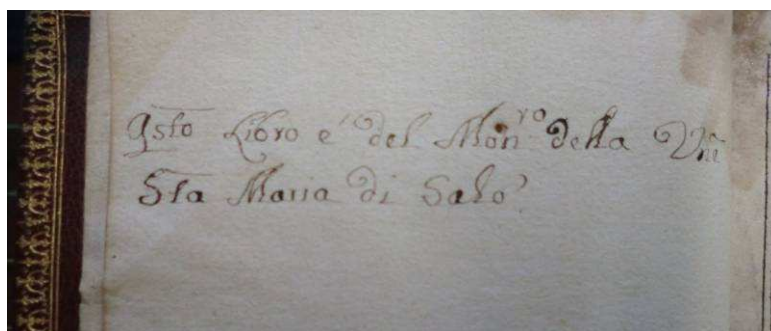 Qsto Libro e' del Monro della Vne
Sta Maria di Salo'